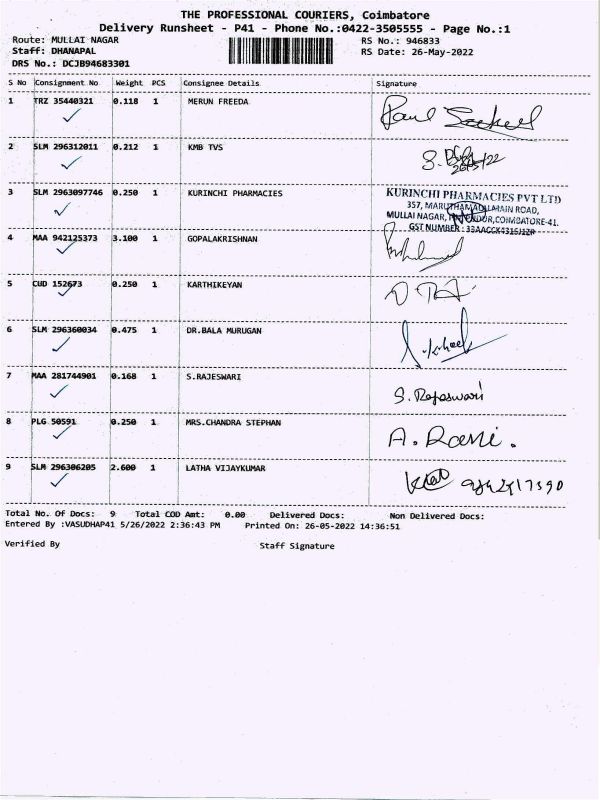 THE PROFESSIONAL COURIERS, Coimbatore
Delivery Runsheet - P41 - Phone No.:0422-3505555 - Page No.:1
Route: MULLAI NAGAR RS No.: 946833
Staff: DHANAPAL RS Date: 26-May-2022
DRS No.: DCJB94683301
S No Consignment No. Weight PCS Consignee Details Signature
1 TRZ 35440321 0.118 1 MERUN FREEDA
2 SLM 296312011 0.212 1 KMB TVS
3 SLM 2963097746 0.250 1 KURINCHI PHARMACIES
KURINCHI PHARMACIES PVT LTD
357, MARUTHAMALAI MAIN ROAD,
MULLAI NAGAR, COIMBATORE-41.
GST NUMBER :
4 MAA 942125373 3.100 1 GOPALAKRISHNAN
5 CUD 152673 0.250 1 KARTHIKEYAN
6 SLM 296360034 0.475 1 DR.BALA MURUGAN
7 MAA 281744901 0.168 1 S.RAJESWARI S. Rajaswari
8 PLG 50591 0.250 1 MRS.CHANDRA STEPHAN A. Rani.
9 SLM 296306205 2.600 1 LATHA VIJAYKUMAR
Total No. Of Docs: 9 Total COD Amt: 0.00 Delivered Docs: Non Delivered Docs:
Entered By :VASUDHAP41 5/26/2022 2:36:43 PM Printed On: 26-05-2022 14:36:51
Verified By Staff Signature